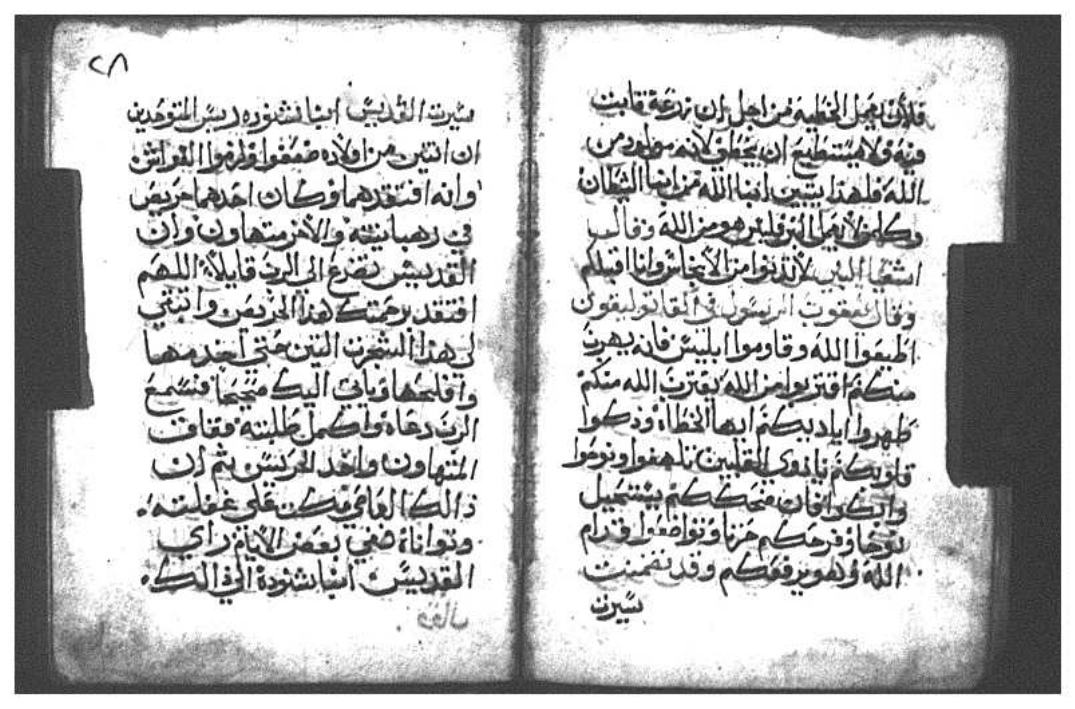 فلان يعمل الخطيه من اجل ان زرعه ثابت
فيه ولا يستطيع ان يخطى لانه مولود من
الله فلهذا يتبين ابنا الله من ابنا الشيطان
وكلمن لا يعمل البر فليس هو من الله وقال
اشعيا النبى لا تدنوا من الانجاس وانا اقبلكم
وقال يعقوب الرسول فى القاتوليقون
اطيعوا الله وقاوموا ابليس فانه يهرب
منكم اقتربوا من الله يقترب الله منكم
طهروا اياديكم ايها الخطاه وزكوا
قلوبكم يا ذوى القلبين تاهبوا ونوحوا
وابكوا فان ضحككم يستحيل
نوحا وفرحكم حزنا وتواضعوا قدام
الله وهو يرفعكم وقد تضمنت
سيرت
٢٨
سيرت القديس انبا شنوده ريس المتوحدين
ان اثنين من اولاده ضعفوا ولزموا الفراش
وانه افتقدهما وكان احدهما حريص
في رهبانيته والاخر متهاون وان
القديس تضرع الى الرب قايلا اللهم
افتقد برحمتك هذا الحريص وابقي
لى هذا حتى اخدمها
واقلمها وياتى اليك فسمع
الرب دعاه واكمل طلبته فعافا
المتهاون واخد الحريص ثم ان
ذالك مكت على غفلته
وتواناه ففي بعض الايام راي
القديس انبا شنوده الى ذالك